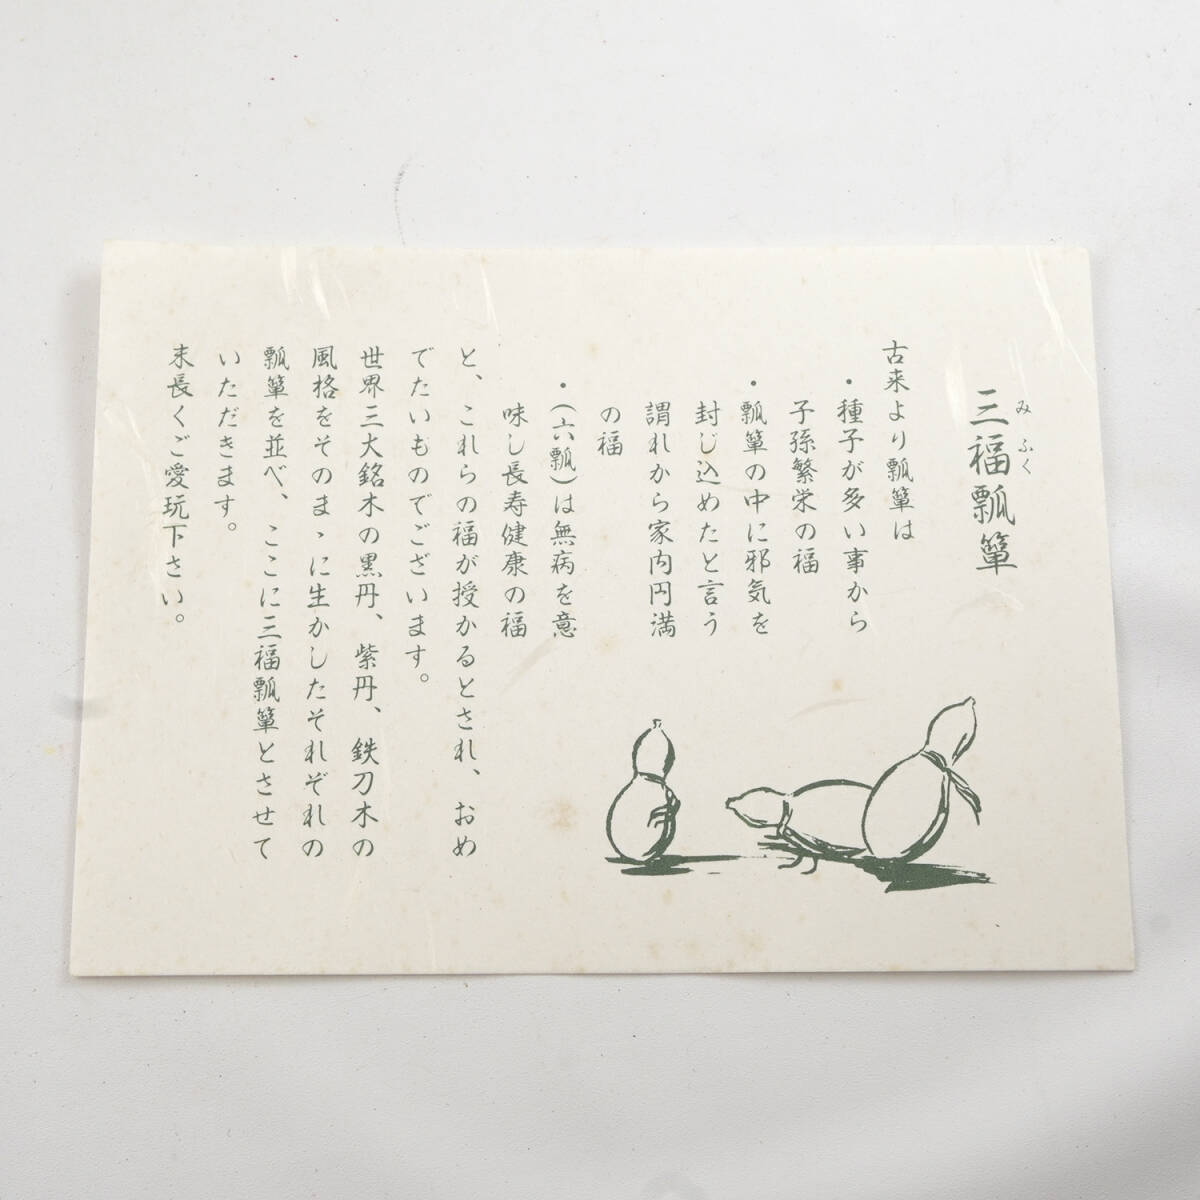 三福瓢箪
みふく
古来より瓢箪は
・種子が多い事から
子孫繁栄の福
・瓢箪の中に邪気を
封じ込めたと言う
謂れから家内円満
の福
・(六瓢)は無病を意
味し長寿健康の福
と、これらの福が授かるとされ、おめ
でたいものでございます。
世界三大銘木の黒丹、紫丹、鉄刀木の
風格をそのまゝに生かしたそれぞれの
瓢箪を並べ、ここに三福瓢箪とさせて
いただきます。
末長くご愛玩下さい。